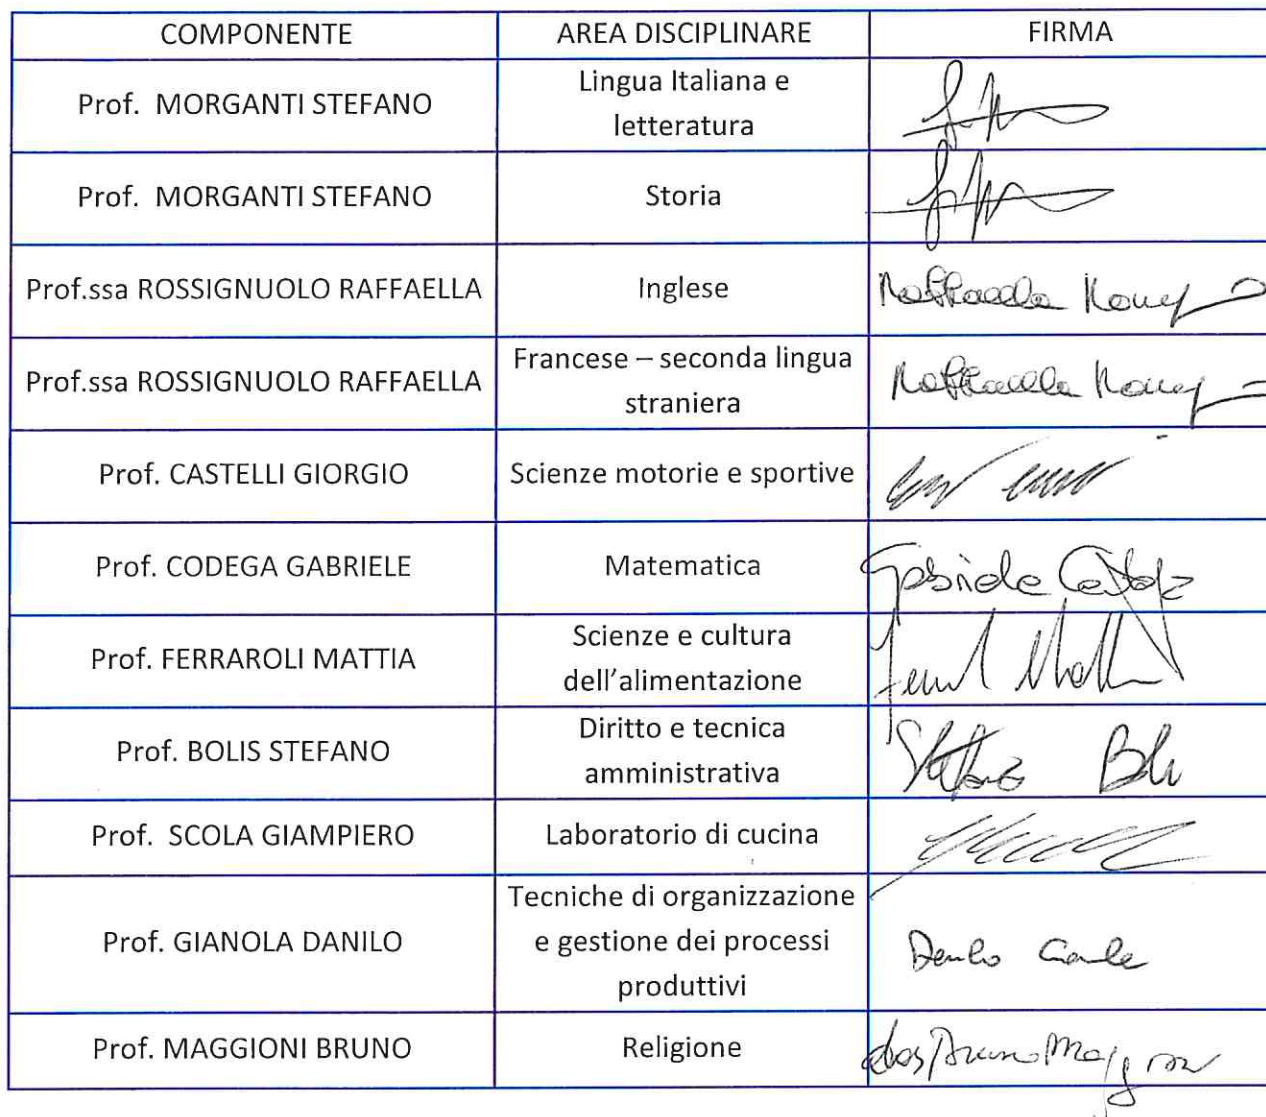 COMPONENTE AREA DISCIPLINARE FIRMA
Prof. MORGANTI STEFANO
Lingua Italiana e
letteratura
Prof. MORGANTI STEFANO Storia
Prof.ssa ROSSIGNUOLO RAFFAELLA Inglese Raffaella
Prof.ssa ROSSIGNUOLO RAFFAELLA
Francese – seconda lingua
straniera
Raffaella
Prof. CASTELLI GIORGIO Scienze motorie e sportive
Prof. CODEGA GABRIELE Matematica Gabriele Codega
Prof. FERRAROLI MATTIA
Scienze e cultura
dell'alimentazione
Prof. BOLIS STEFANO
Diritto e tecnica
amministrativa
Stefano
Prof. SCOLA GIAMPIERO Laboratorio di cucina
Prof. GIANOLA DANILO
Tecniche di organizzazione
e gestione dei processi
produttivi
Danilo
Prof. MAGGIONI BRUNO Religione don Bruno Maggioni